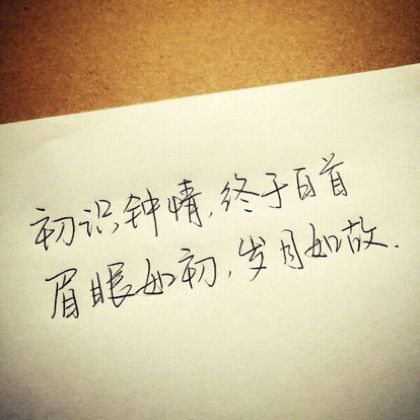 初识钟情，终于白首
眉眼如初，岁月如故.